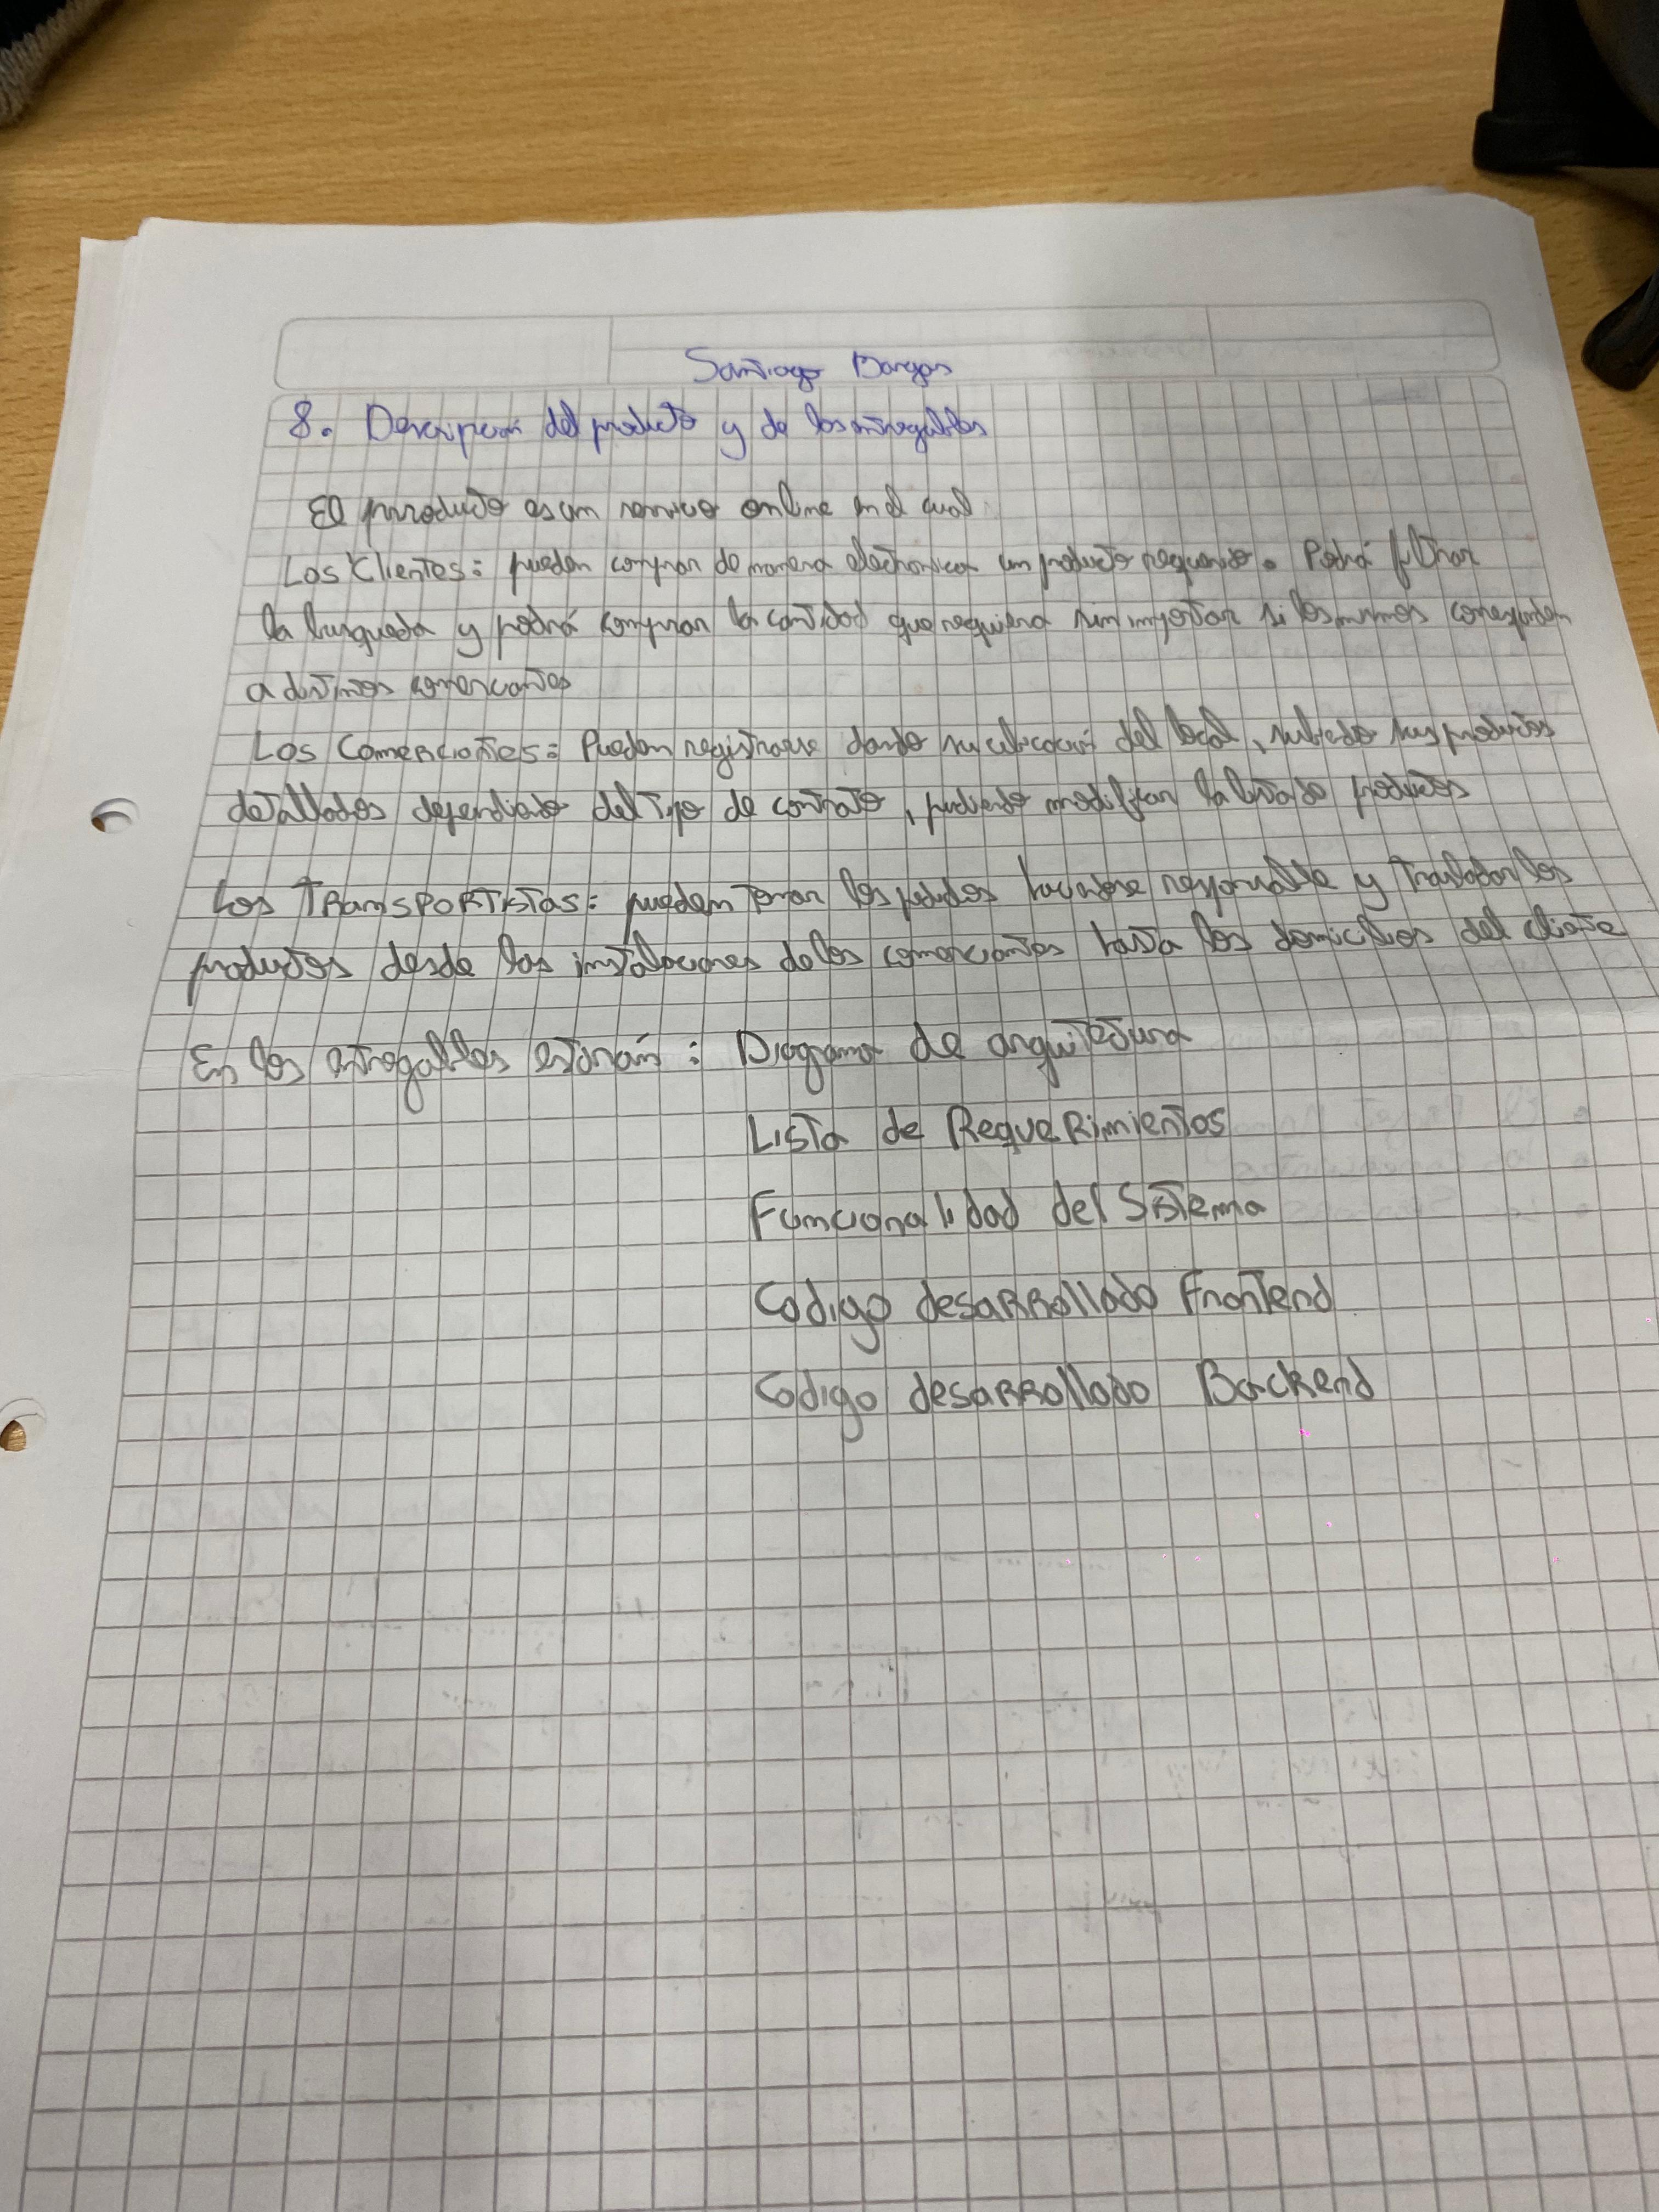 Santiago Bargas
8. Descripción del producto y de los entregables
El producto es un servicio online en el cual
Los Clientes: pueden comprar de manera electronica un producto requerido. Podrá filtrar
la busqueda y podrá comprar la cantidad que requiera sin importar si los mismos corresponden
a distintos comerciantes
Los Comerciantes: Pueden registrarse dando su ubicación del local, subiendo sus productos
detallados dependiendo del tipo de contrato, pudiendo modificar la lista de productos
Los TRansPORTistas: pueden tomar los pedidos haciendose responsable y trasladar los
productos desde las instalaciones de los comerciantes hasta los domicilios del cliente
En los entregables estarán: Diagrama de arquitectura
Lista de Requerimientos
Funcionalidad del Sistema
Codigo desarrollado Frontend
Codigo desarrollado Backend